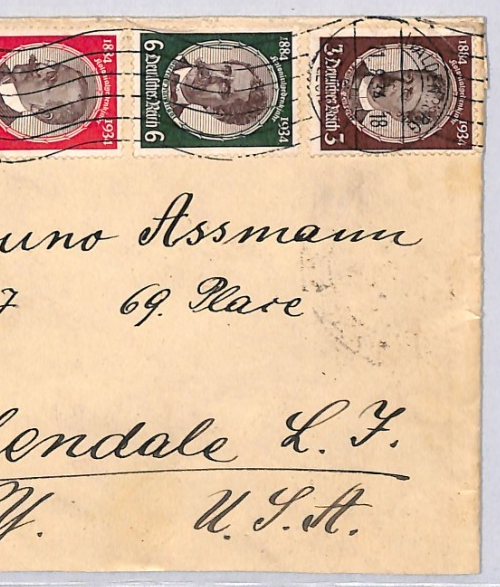 1884 1934
6 Deutsches Reich 6 1884 Kolonialgedenkjahr 1934
3 Deutsches Reich 3 1884 Kolonialgedenkjahr 1934
WALDENBURG
18
uno Assmann
7 69. Place
endale L. I.
Y. U.S.A.